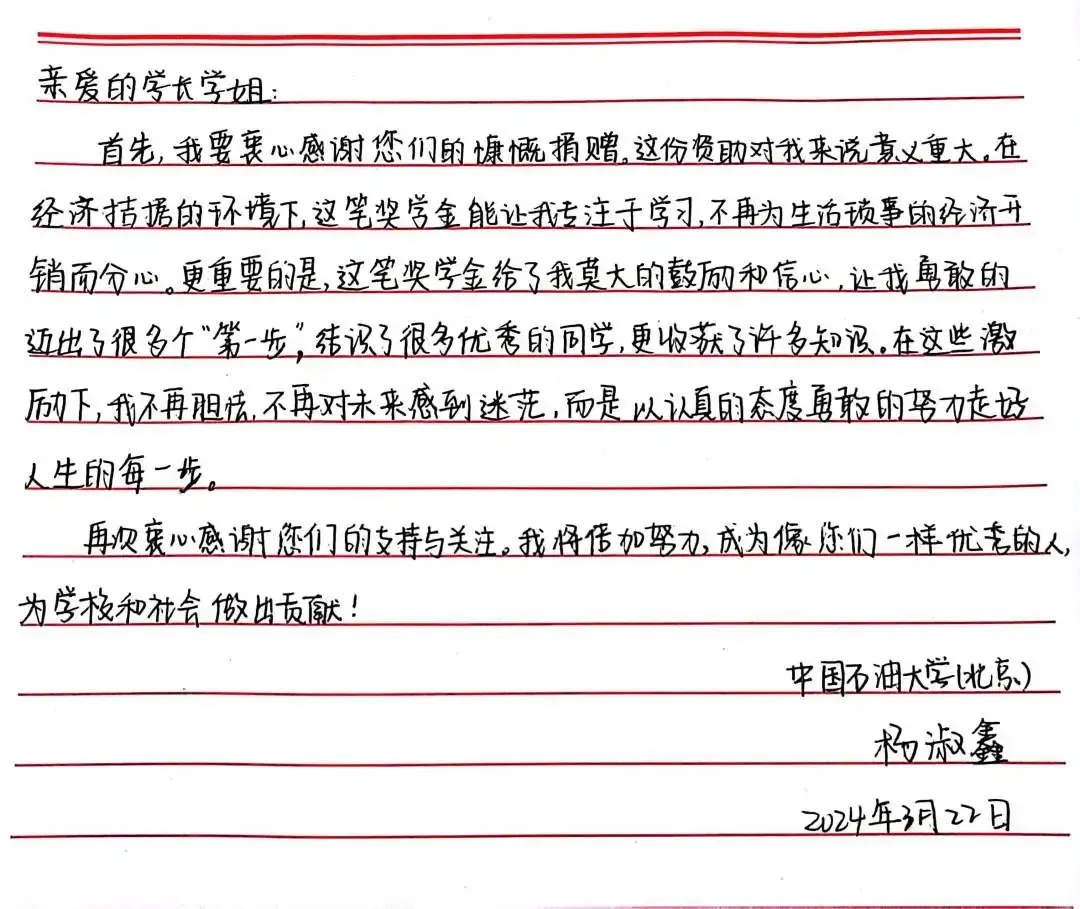 亲爱的学长学姐:
首先,我要衷心感谢您们的慷慨捐赠。这份资助对我来说意义重大。在
经济拮据的环境下,这笔奖学金能让我专注于学习,不再为生活琐事的经济开
销而分心。更重要的是,这笔奖学金给了我莫大的鼓励和信心,让我勇敢的
迈出了很多个“第一步”,结识了很多优秀的同学,更收获了许多知识。在这些激
励下,我不再胆怯,不再对未来感到迷茫,而是以认真的态度勇敢的努力走好
人生的每一步。
再次衷心感谢您们的支持与关注。我将倍加努力,成为像您们一样优秀的人,
为学校和社会做出贡献!
中国石油大学(北京)
杨淑鑫
2024年3月22日